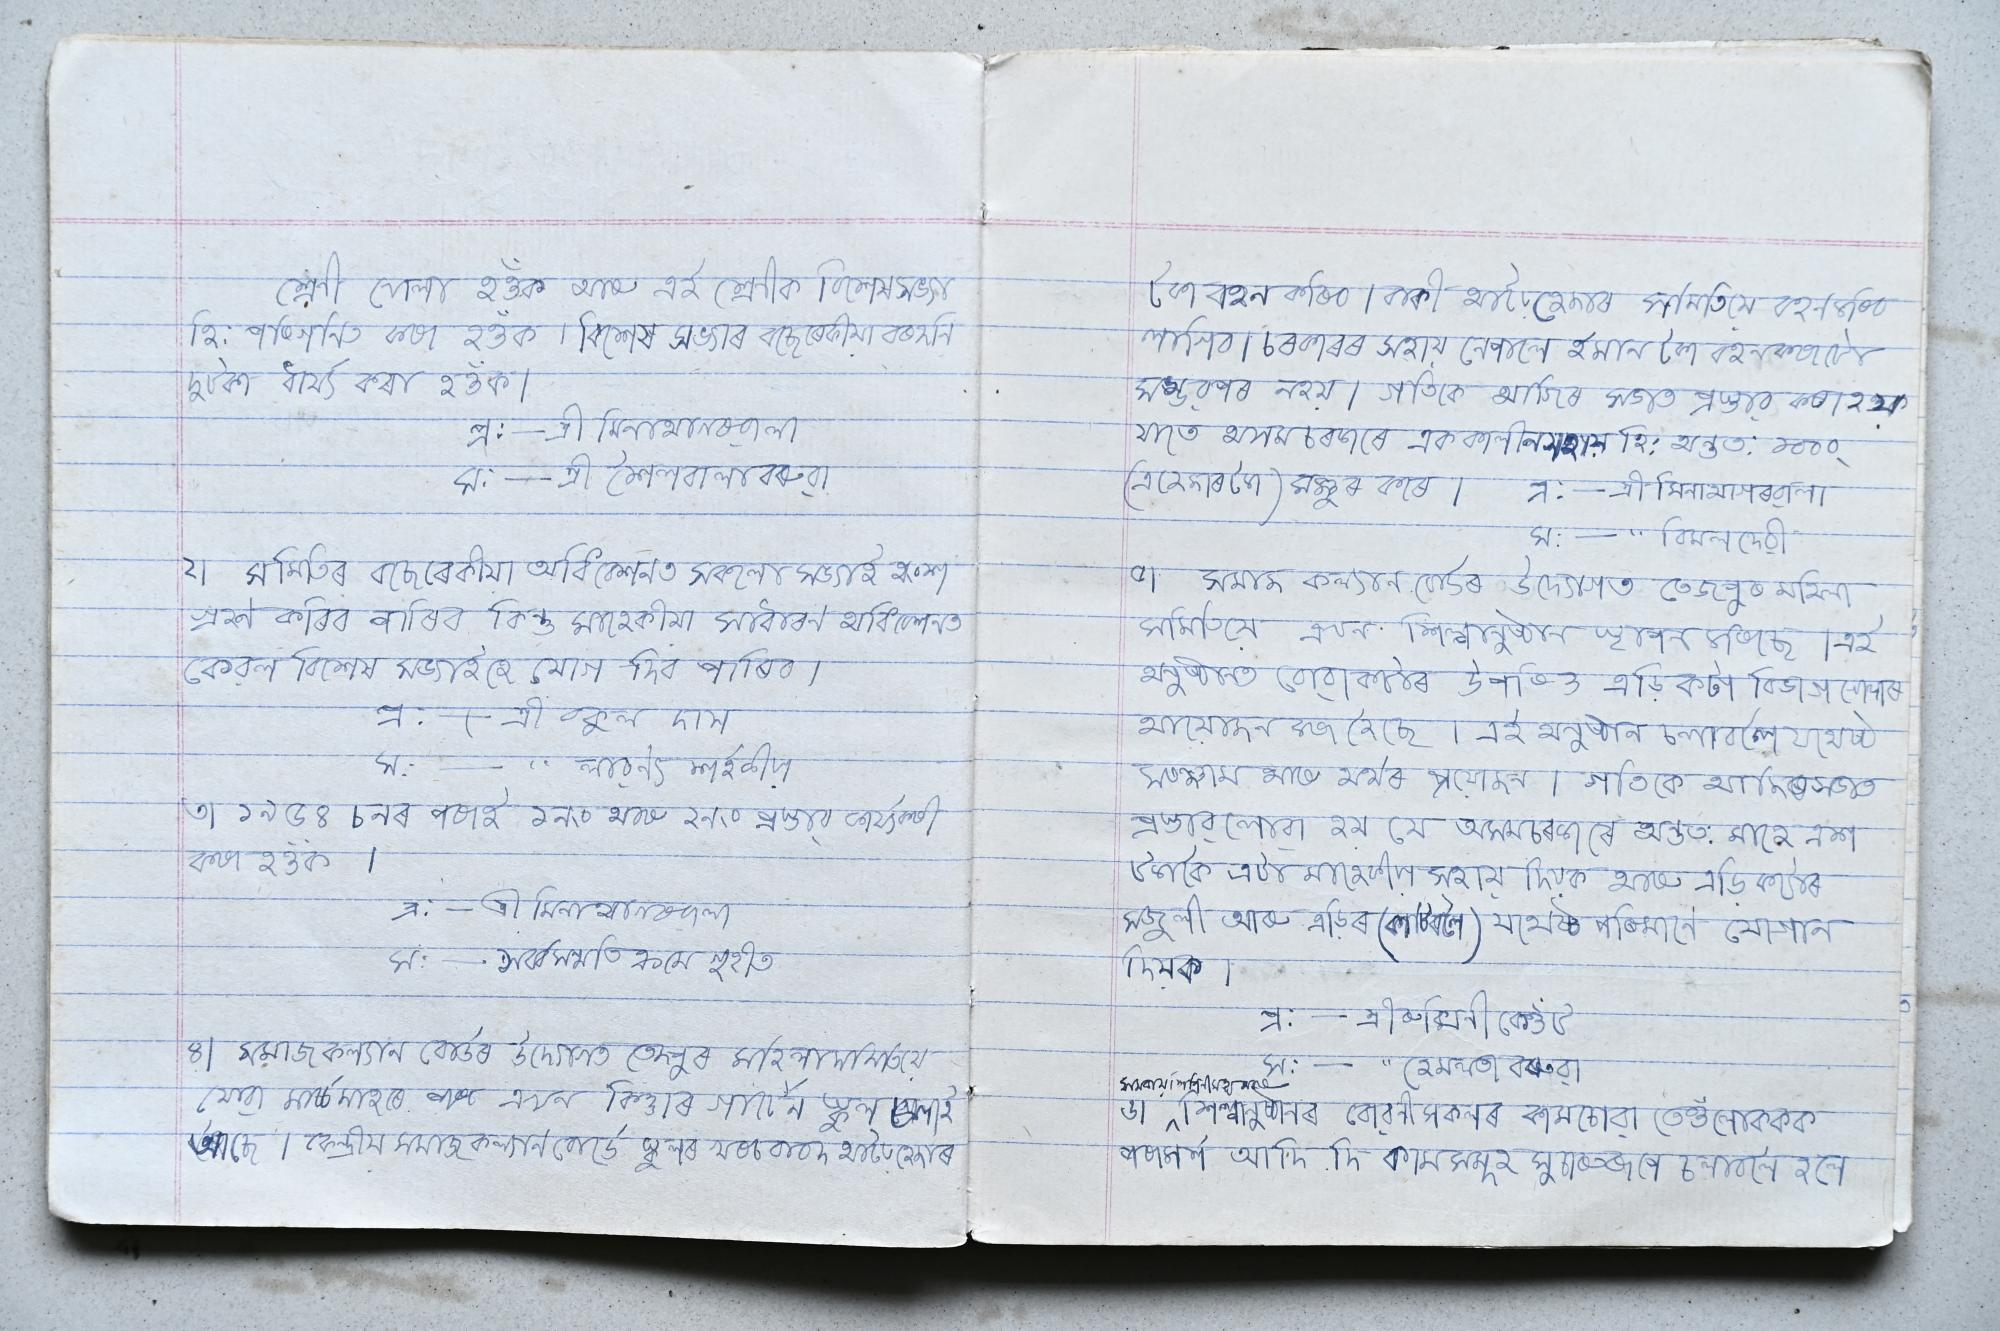 শ্ৰেণী খোলা হওঁক আৰু এই শ্ৰেণীক বিশেষ সভ্যা
হি: পৰিগনিত কৰা হওঁক । বিশেষ সভ্যাৰ বছেৰেকীয়া বৰঙনি
দুটকা ধাৰ্য্য কৰা হওঁক ।
প্ৰ: — শ্ৰী মিনা আগৰৱালা
স: — শ্ৰী শৈলবালা বৰুৱা
২। সমিতিৰ বছেৰেকীয়া অধিবেশনত সকলো সভ্যাই অংশ
গ্ৰহণ কৰিব পাৰিব কিন্তু মাহেকীয়া সাধাৰণ অধিবেশনত
কেৱল বিশেষ সভ্যাইহে যোগ দিব পাৰিব ।
প্ৰ: — শ্ৰী বকুল দাস
স: — " লাৱণ্য
৩। ১৯৫৪ চনৰ পৰাই ১নং আৰু ২নং প্ৰস্তাৱ কাৰ্য্যকৰী
কৰা হওঁক ।
প্ৰ: — শ্ৰী মিনা আগৰৱালা
স: — সৰ্ব্বসন্মতি ক্ৰমে গৃহীত
৪। সমাজকল্যান বোৰ্ডৰ উদ্যোগত তেজপুৰ মহিলা সমিতিয়ে
যোৱা মাৰ্চ্চমাহৰে পৰা এখন কিণ্ডাৰ গাৰ্টেন স্কুল চলাই
আছে । কেন্দ্ৰীয় সমাজকল্যান বোৰ্ডে স্কুলৰ খৰচ বাবদ আঢ়ৈহেজাৰ
টকা বহন কৰিব । বাকী আঢ়ৈহেজাৰ সমিতিয়ে বহন কৰিব
লাগিব । চৰকাৰৰ সহায় নেপালে ইমান টকা বহন কৰাটো
সম্ভৱপৰ নহয় । গতিকে আজিৰ সভাত প্ৰস্তাৱ কৰা হয়
যাতে অসম চৰকাৰে এককালীন সাহায্য হি: অন্তত: ১০০০৲
(এহেজাৰ টকা) মঞ্জুৰ কৰে । প্ৰ: — শ্ৰী মিনা আগৰৱালা
স: — " বিমল দেৱী
৫। সমাজ কল্যান বোৰ্ডৰ উদ্যোগত তেজপুৰ মহিলা
সমিতিয়ে এখন শিল্পানুষ্ঠান স্থাপন কৰিছে । এই
অনুষ্ঠানত বোৱাকটাৰ উপৰিও এড়ি কটা বিভাগ খোলাৰ
আয়োজন কৰা হৈছে । এই অনুষ্ঠান চলাবলৈ যথেষ্ট
সৰঞ্জাম আৰু অৰ্থৰ প্ৰয়োজন । গতিকে আজিৰ সভাত
প্ৰস্তাৱ লোৱা হয় যে অসম চৰকাৰে অন্তত: মাহে এশ
টকাকৈ এটা মাহেকীয়া সহায় দিয়ক আৰু এড়ি কটাৰ
সজুলী আৰু এড়িৰ (কাটিবলৈ) যথেষ্ট পৰিমানে যোগান
দিয়ক ।
প্ৰ: — শ্ৰী ৰুক্মিনী কেওঁট
স: — " হেমলতা বৰুৱা
৬। শিল্পানুষ্ঠানৰ বোৱনীসকলৰ কামচোৱা তেওঁলোকক
পৰামৰ্শ আদি দি কামসমূহ সুচাৰুৰূপে চলাবলৈ হলে